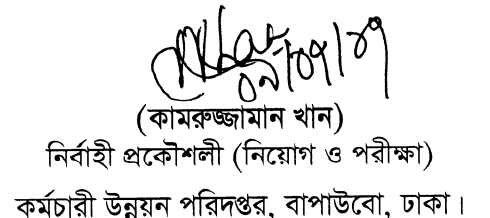 (কামরুজ্জামান খান)
নির্বাহী প্রকৌশলী (নিয়োগ ও পরীক্ষা)
কর্মচারী উন্নয়ন পরিদপ্তর, বাপাউবো, ঢাকা।